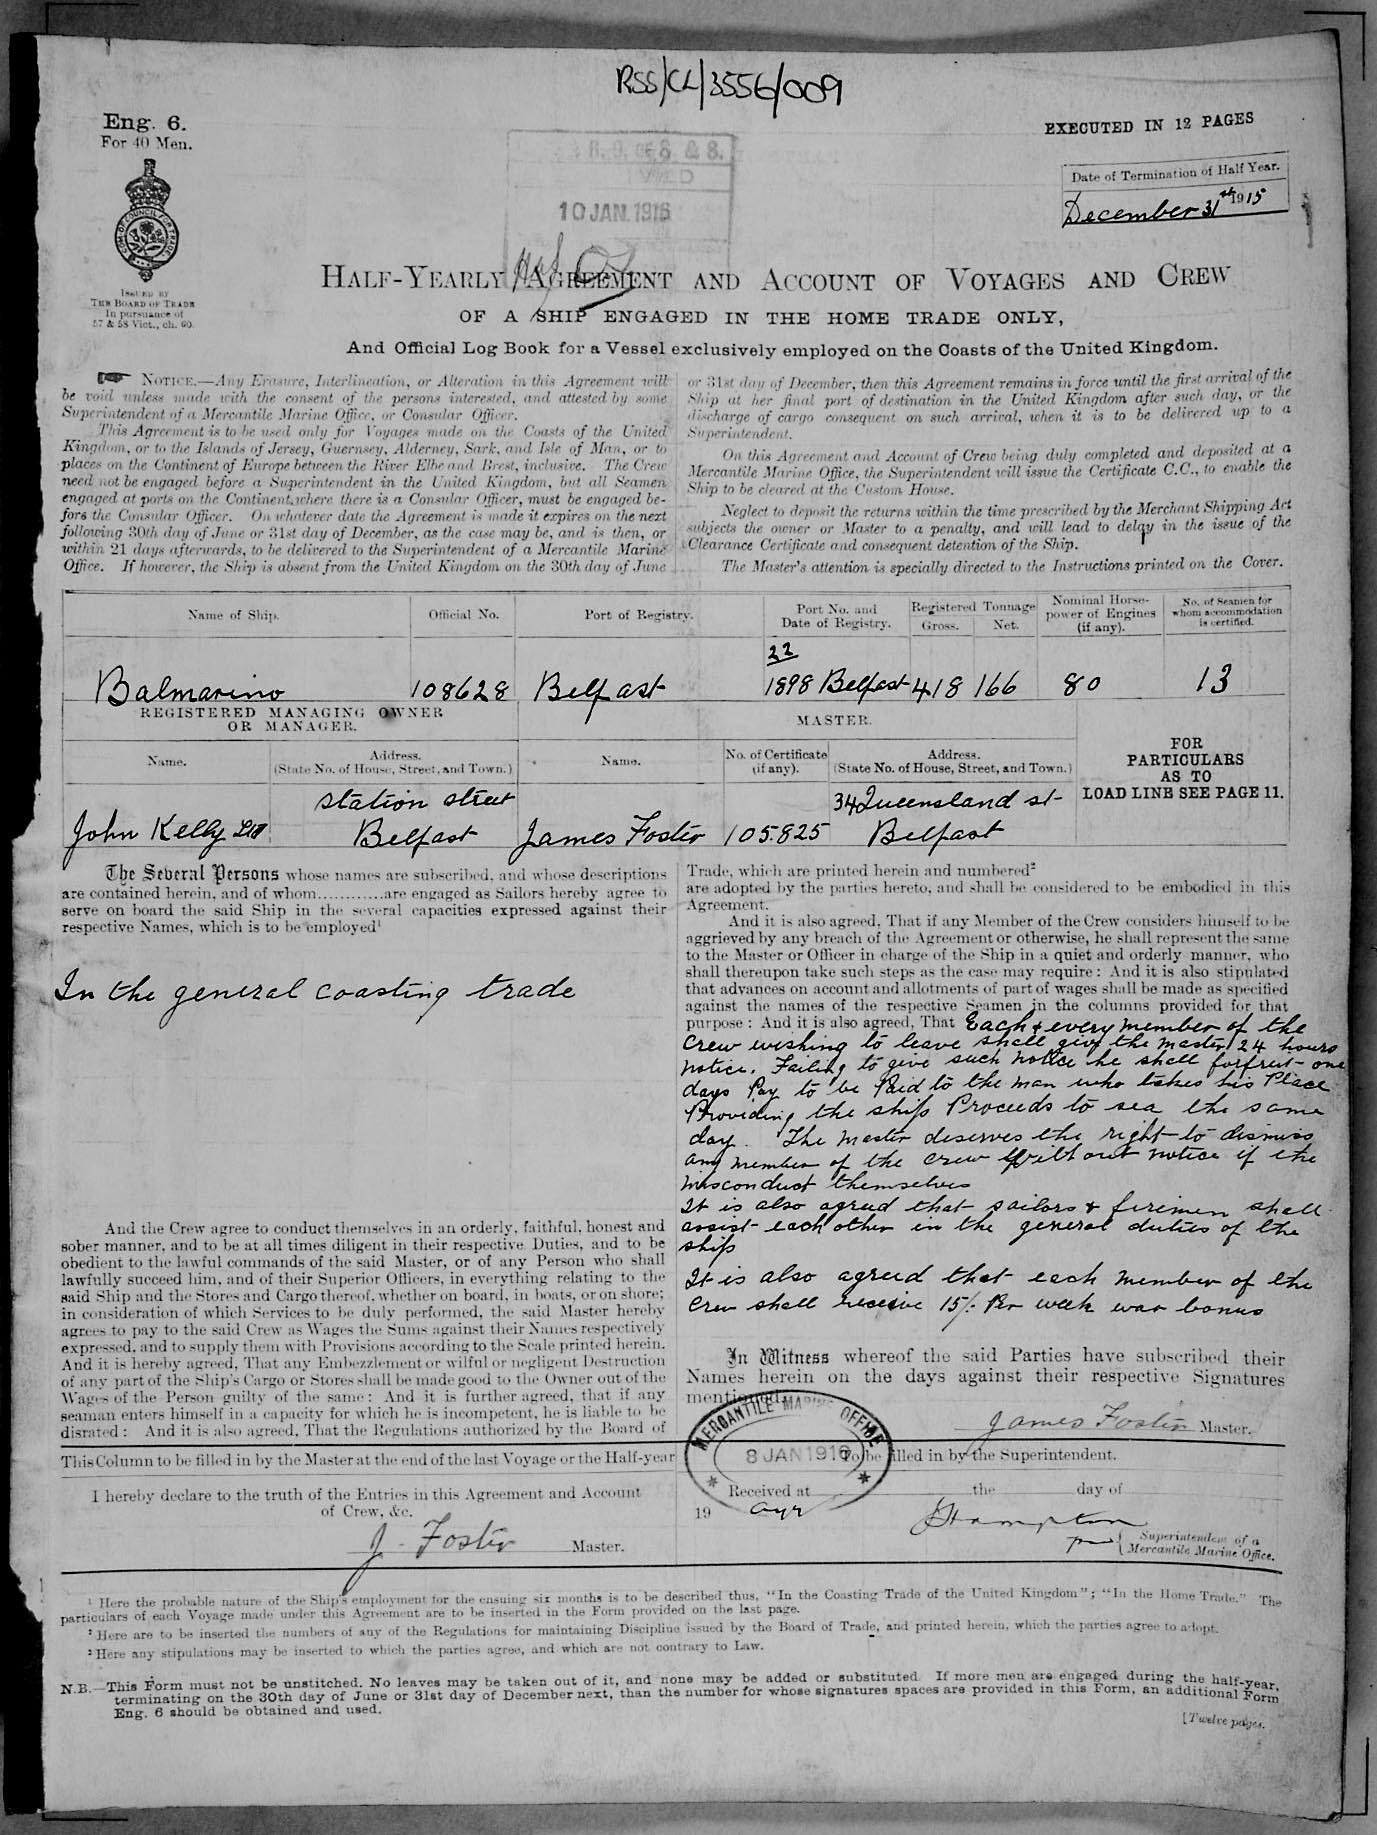 RSS/CL/3556/009
Eng. 6.
For 40 Men.
EXECUTED IN 12 PAGES
Date of Termination of Half Year.
December 31st 1915
10 JAN. 1916
ISSUED BY
THE BOARD OF TRADE
In pursuance of
57 & 58 Vict., ch. 60.
HALF-YEARLY AGREEMENT AND ACCOUNT OF VOYAGES AND CREW
OF A SHIP ENGAGED IN THE HOME TRADE ONLY,
And Official Log Book for a Vessel exclusively employed on the Coasts of the United Kingdom.
NOTICE.—Any Erasure, Interlineation, or Alteration in this Agreement will
be void unless made with the consent of the persons interested, and attested by some
Superintendent of a Mercantile Marine Office, or Consular Officer.
This Agreement is to be used only for Voyages made on the Coasts of the United
Kingdom, or to the Islands of Jersey, Guernsey, Alderney, Sark, and Isle of Man, or to
places on the Continent of Europe between the River Elbe and Brest, inclusive. The Crew
need not be engaged before a Superintendent in the United Kingdom, but all Seamen
engaged at ports on the Continent, where there is a Consular Officer, must be engaged be-
fore the Consular Officer. On whatever date the Agreement is made it expires on the next
following 30th day of June or 31st day of December, as the case may be, and is then, or
within 21 days afterwards, to be delivered to the Superintendent of a Mercantile Marine
Office. If however, the Ship is absent from the United Kingdom on the 30th day of June
or 31st day of December, then this Agreement remains in force until the first arrival of the
Ship at her final port of destination in the United Kingdom after such day, or the
discharge of cargo consequent on such arrival, when it is to be delivered up to a
Superintendent.
On this Agreement and Account of Crew being duly completed and deposited at a
Mercantile Marine Office, the Superintendent will issue the Certificate C.C., to enable the
Ship to be cleared at the Custom House.
Neglect to deposit the returns within the time prescribed by the Merchant Shipping Act
subjects the owner or Master to a penalty, and will lead to delay in the issue of the
Clearance Certificate and consequent detention of the Ship.
The Master's attention is specially directed to the Instructions printed on the Cover.
Name of Ship. Official No. Port of Registry. Port No. and Date of Registry. Registered Tonnage Gross. Net. Nominal Horse-power of Engines (if any). No. of Seamen for whom accommodation is certified.
22
Balmarino 108628 Belfast 1898 Belfast 418 166 80 13
REGISTERED MANAGING OWNER
OR MANAGER.
MASTER.
Name. Address. (State No. of House, Street, and Town.) Name. No. of Certificate (if any). Address. (State No. of House, Street, and Town.)
FOR
PARTICULARS
AS TO
LOAD LINE SEE PAGE 11.
station street 34 Queensland st
John Kelly Ltd Belfast James Foster 105.825 Belfast
The Several Persons whose names are subscribed, and whose descriptions
are contained herein, and of whom............are engaged as Sailors hereby agree to
serve on board the said Ship in the several capacities expressed against their
respective Names, which is to be employed¹
In the general coasting trade
And the Crew agree to conduct themselves in an orderly, faithful, honest and
sober manner, and to be at all times diligent in their respective Duties, and to be
obedient to the lawful commands of the said Master, or of any Person who shall
lawfully succeed him, and of their Superior Officers, in everything relating to the
said Ship and the Stores and Cargo thereof, whether on board, in boats, or on shore;
in consideration of which Services to be duly performed, the said Master hereby
agrees to pay to the said Crew as Wages the Sums against their Names respectively
expressed, and to supply them with Provisions according to the Scale printed herein.
And it is hereby agreed, That any Embezzlement or wilful or negligent Destruction
of any part of the Ship's Cargo or Stores shall be made good to the Owner out of the
Wages of the Person guilty of the same: And it is further agreed, that if any
seaman enters himself in a capacity for which he is incompetent, he is liable to be
disrated: And it is also agreed, That the Regulations authorized by the Board of
Trade, which are printed herein and numbered²
are adopted by the parties hereto, and shall be considered to be embodied in this
Agreement.
And it is also agreed, That if any Member of the Crew considers himself to be
aggrieved by any breach of the Agreement or otherwise, he shall represent the same
to the Master or Officer in charge of the Ship in a quiet and orderly manner, who
shall thereupon take such steps as the case may require: And it is also stipulated
that advances on account and allotments of part of wages shall be made as specified
against the names of the respective Seamen in the columns provided for that
purpose: And it is also agreed, That Each & every member of the
Crew wishing to leave shall give the master 24 hours
notice. Failing to give such notice he shall forfreit one
days Pay to be Paid to the man who takes his Place
Providing the ship Proceeds to sea the same
day. The master deserves the right to dismiss
any member of the crew without notice if the
misconduct themselves
It is also agreed that sailors & firemen shall
assist each other in the general duties of the
ship
It is also agreed that each member of the
Crew shall receive 15/- Per week war bonus
In Witness whereof the said Parties have subscribed their
Names herein on the days against their respective Signatures
mentioned.
James Foster Master.
This Column to be filled in by the Master at the end of the last Voyage or the Half-year
I hereby declare to the truth of the Entries in this Agreement and Account
of Crew, &c.
J. Foster Master.
MERCANTILE MARINE OFFICE
8 JAN 1916
To be filled in by the Superintendent.
Received at the day of
19 Ayr
Superintendent of a
Mercantile Marine Office.
¹ Here the probable nature of the Ship's employment for the ensuing six months is to be described thus, "In the Coasting Trade of the United Kingdom"; "In the Home Trade." The
particulars of each Voyage made under this Agreement are to be inserted in the Form provided on the last page.
² Here are to be inserted the numbers of any of the Regulations for maintaining Discipline issued by the Board of Trade, and printed herein, which the parties agree to adopt.
³ Here any stipulations may be inserted to which the parties agree, and which are not contrary to Law.
N.B.—This Form must not be unstitched. No leaves may be taken out of it, and none may be added or substituted. If more men are engaged during the half-year,
terminating on the 30th day of June or 31st day of December next, than the number for whose signatures spaces are provided in this Form, an additional Form
Eng. 6 should be obtained and used.
[Twelve pages.